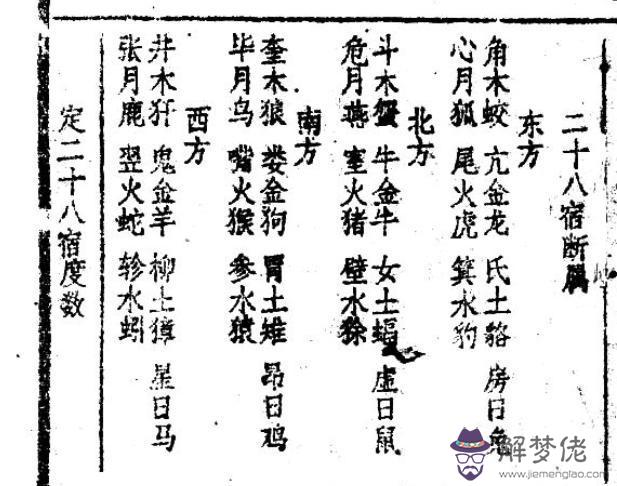 二十八宿断属
东方
角木蛟 亢金龙 氏土貉 房日兔
心月狐 尾火虎 箕水豹
北方
斗木蟹 牛金牛 女土蝠 虚日鼠
危月 室火猪 壁水
南方
奎木狼 娄金狗 胃土雉 昂日鸡
毕月乌 嘴火猴 参水猿
西方
井木犴 鬼金羊 柳土獐 星日马
张月鹿 翌火蛇 轸水蚓
定二十八宿度数
解梦佬
www.jiemenglao.com